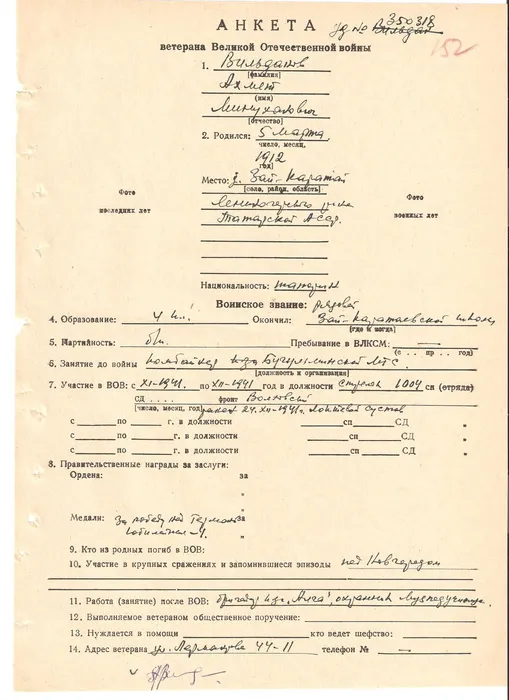 АНКЕТА Уд № 350318
152
ветерана Великой Отечественной войны
1. Вильданов
[фамилия]
Ахмет
(имя)
[отчество]
2. Родился: 5 марта
число, месяц,
1912
год]
Место: Зай-Каратай
[село, район, область]
Лениногорского р-на
Татарской АССР.
Фото
последних лет
Фото
военных лет
Национальность: татарин
Воинское звание: рядовой
4. Образование: 4 кл. Окончил: Зай-Каратаевской школы
(где и когда)
5. Партийность: б/п. Пребывание в ВЛКСМ: —
(с . . пр — . . год)
6. Занятие до войны комбайнер к-за Бугульминской МТС
[должность и организация]
7. Участие в ВОВ: с XI-1941. по XII-1941 год в должности стрелок 1004 сп (отряда)
СД . . . . фронт Волховский
[число, месяц, год] ранен 24.XII-1941г. локтевой сустав
с ____ по ____ г. в должности ____ сп ____ СД "
с ____ по ____ г. в должности ____ сп ____ СД "
с ____ по ____ г. в должности ____ сп ____ СД "
8. Правительственные награды за заслуги:
Ордена: за
"
"
Медали: За победу над Герман. за
юбилейных-4. "
9. Кто из родных погиб в ВОВ:
10. Участие в крупных сражениях и запомнившиеся эпизоды под Новгородом
11. Работа (занятие) после ВОВ: бригадир к-за охранник
12. Выполняемое ветераном общественное поручение:
13. Нуждается в помощи ____ кто ведет шефство:
14. Адрес ветерана ул. Лермонтова 44-11 телефон № —